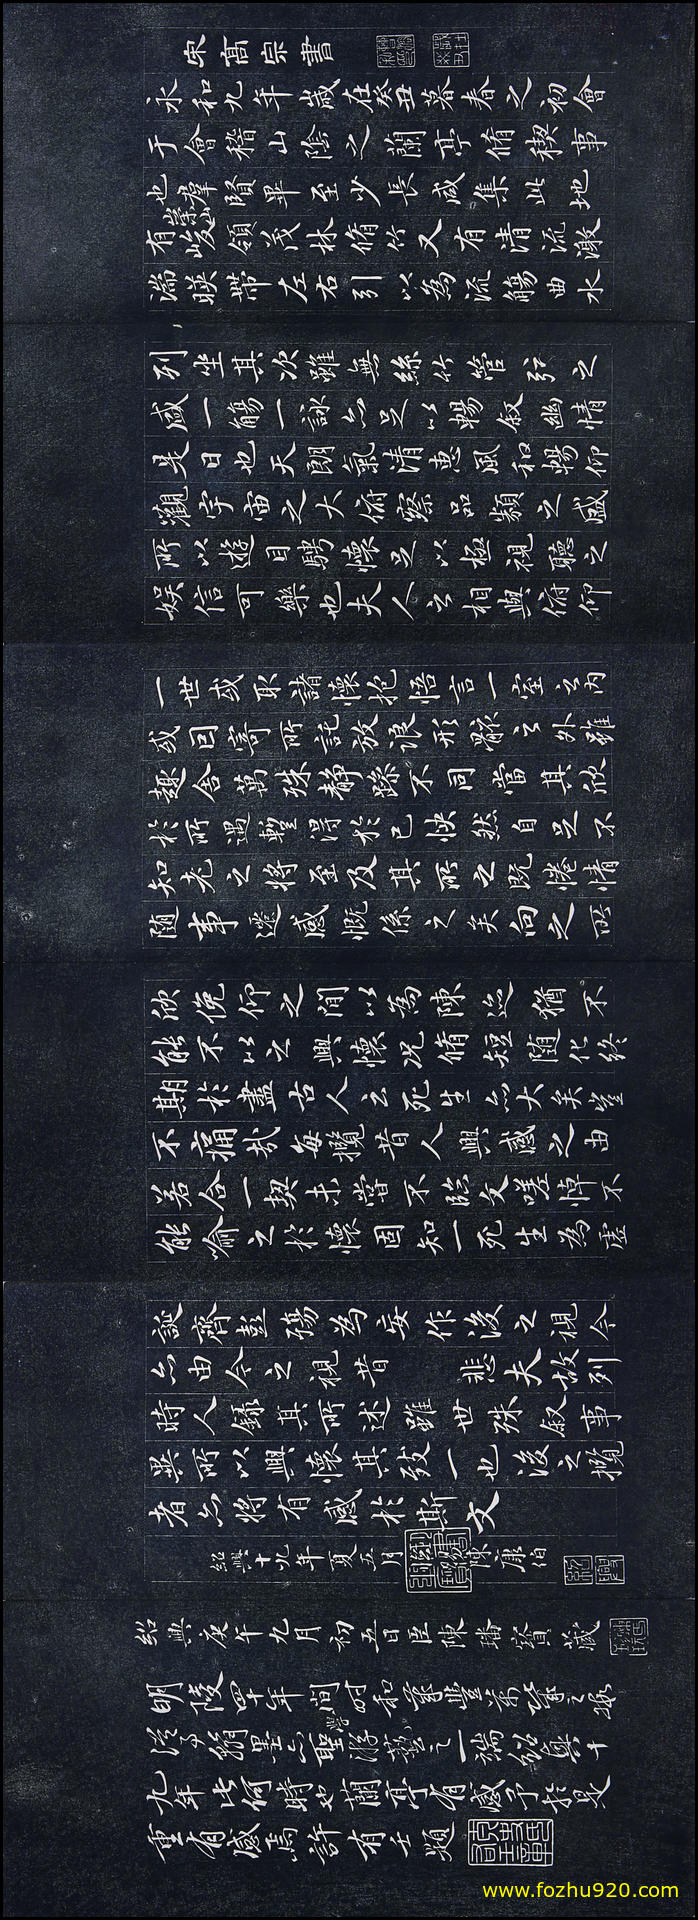 宋高宗書
永和九年歲在癸丑暮春之初會
于會稽山陰之蘭亭脩稧事
也群賢畢至少長咸集此地
有崇山峻領茂林脩竹又有清流激
湍暎帶左右引以為流觴曲水
列坐其次雖無絲竹管弦之
盛一觴一詠亦足以暢叙幽情
是日也天朗氣清惠風和暢仰
觀宇宙之大俯察品類之盛
所以遊目騁懷足以極視聽之
娛信可樂也夫人之相與俯仰
一世或取諸懷抱悟言一室之內
或因寄所託放浪形骸之外雖
趣舍萬殊靜躁不同當其欣
於所遇蹔得於己怏然自足不
知老之將至及其所之既惓情
隨事遷感慨係之矣向之所
欣俛仰之間以為陳迹猶不
能不以之興懷況脩短隨化終
期於盡古人云死生亦大矣豈
不痛哉每攬昔人興感之由
若合一契未嘗不臨文嗟悼不
能喻之於懷固知一死生為虛
誕齊彭殤為妄作後之視今
亦由今之視昔 悲夫故列
時人錄其所述雖世殊叙事
異所以興懷其致一也後之攬
者亦將有感於斯文
紹興十九年夏五月 陳康伯
紹興庚午九月初五日臣陳璠寶藏
明陵四十年間時和歲豐
翰墨亦聖學游藝之一端紹興十
九年此何時也蘭亭有感予於是
重有感焉許有壬題
www.fozhu920.com